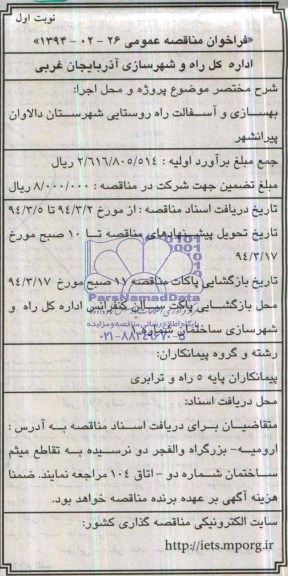 نوبت اول
«فراخوان مناقصه عمومی ۲۶ - ۰۲ - ۱۳۹۴»
اداره کل راه و شهرسازی آذربایجان غربی
شرح مختصر موضوع پروژه و محل اجرا:
بهسازی و آسفالت راه روستایی شهرستان دالاوان
پیرانشهر
جمع مبلغ برآورد اولیه : ۲/۶۱۶/۸۰۵/۵۱۴ ریال
مبلغ تضمین جهت شرکت در مناقصه : ۸/۰۰۰/۰۰۰ ریال
تاریخ دریافت اسناد مناقصه : از مورخ ۹۴/۳/۲ تا ۹۴/۳/۵
تاریخ تحویل پیشنهادهای مناقصه تا ۱۰ صبح مورخ
۹۴/۳/۱۷
تاریخ بازگشایی پاکات مناقصه ۱۱ صبح مورخ ۹۴/۳/۱۷
ParsNamadData
محل بازگشایی پاکت سالن کنفرانس اداره کل راه و
پایگاه اطلاع رسانی مناقصه و مزایده
شهرسازی ساختمان شماره ۱
۰۲۱-۸۸۳۴۹۶۷۰-۵
رشته و گروه پیمانکاران:
پیمانکاران پایه ۵ راه و ترابری
محل دریافت اسناد:
متقاضیان برای دریافت اسناد مناقصه به آدرس :
ارومیه- بزرگراه والفجر دو نرسیده به تقاطع میثم
ساختمان شماره دو - اتاق ۱۰۴ مراجعه نمایند. ضمنا
هزینه آگهی بر عهده برنده مناقصه خواهد بود.
سایت الکترونیکی مناقصه گذاری کشور:
http://iets.mporg.ir